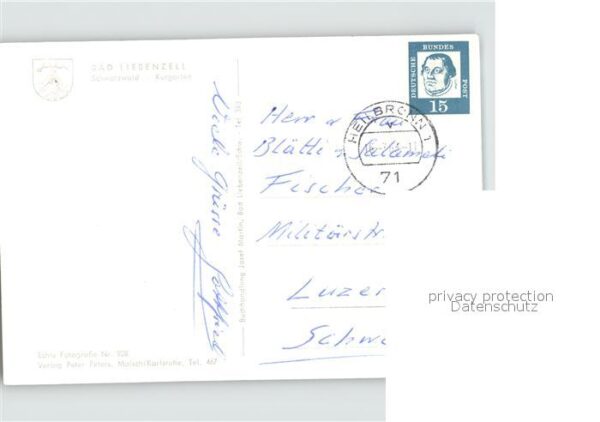 BAD LIEBENZELL
Schwarzwald Kurgarten
Viele Grüsse
Gottfried
Buchhandlung Josef Martin, Bad Liebenzell/Schw. - Tel. 393
Echte Fotografie Nr. 928
Verlag Peter Peters, Malsch/Karlsruhe, Tel. 467
DEUTSCHE
BUNDES
POST
15
HEILBRONN 1
71
Herr u Frau
Blätti
Fischer
Militärstr
Luzer
Schw
privacy protection
Datenschutz